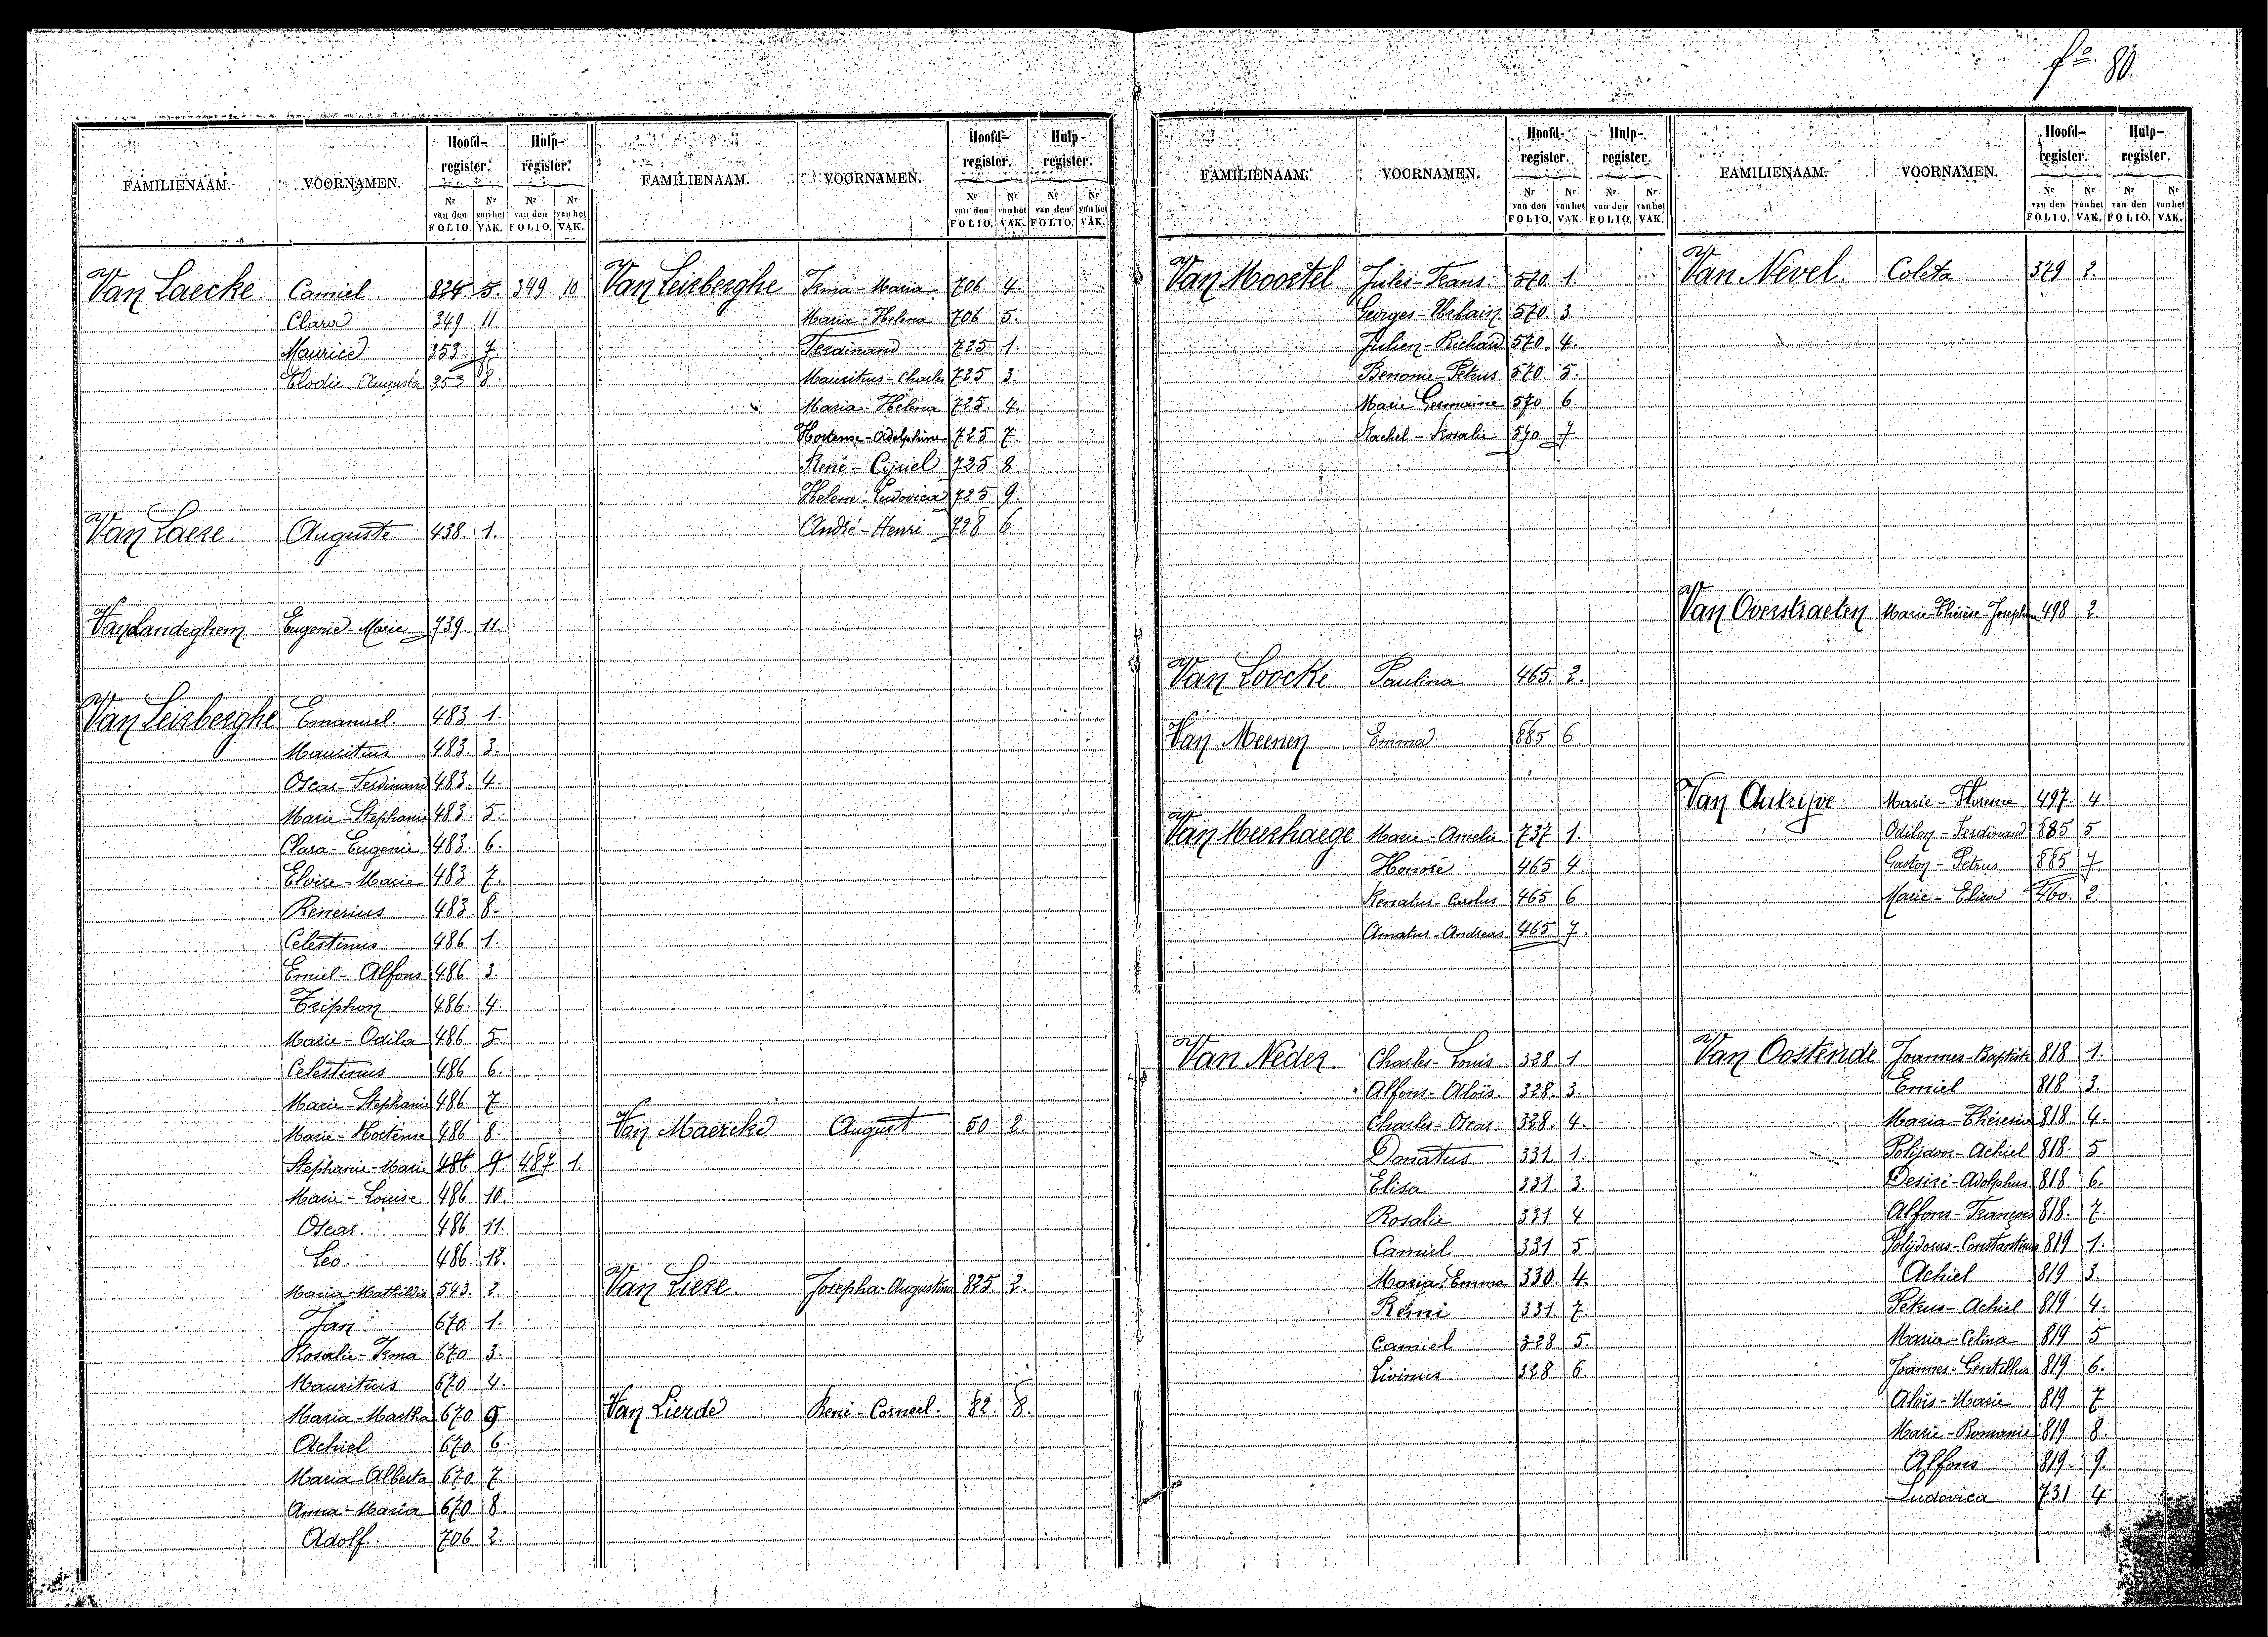 fº 80.
Hoofd-register. Hulp-register.
FAMILIENAAM. VOORNAMEN. Nr van den FOLIO. Nr van het VAK. Nr van den FOLIO. Nr van het VAK.
Van Laecke Camiel 824 5. 349 10
Clara 349 11
Maurice 353 7
Elodie Augusta 353 8.
Van Laere. Auguste 438. 1.
Van Landeghem Eugenie-Marie 739. 11.
Van Leirberghe Emanuel 483 1.
Mauritius 483. 3.
Oscar-Ferdinand 483. 4.
Marie-Stephanie 483. 5.
Clara-Eugenie 483. 6.
Eloise-Maria 483 7.
Renerius 483 8.
Celestinus 486 1.
Emiel-Alfons 486 3.
Triphon 486. 4.
Marie-Odila 486 5
Celestinus 486 6.
Marie-Stephanie 486 7
Marie-Hortense 486 8.
Stephanie-Marie 486 9. 487 1.
Marie-Louise 486 10.
Oscar. 486 11.
Leo. 486. 12.
Maria-Mathildis 543. 2.
Jan 670 1.
Rosalie-Irma 670 3.
Mauritius 670 4.
Maria-Martha 670 9
Achiel 670 6.
Maria-Alberta 670 7
Anna-Maria 670 8.
Adolf. 706 2.
Hoofd-register. Hulp-register.
FAMILIENAAM. VOORNAMEN. Nr van den FOLIO. Nr van het VAK. Nr van den FOLIO. Nr van het VAK.
Van Leirberghe Irma-Maria 706 4.
Maria-Helena 706 5.
Ferdinand 725 1.
Mauritus-Charles 725 3.
Maria-Helena 725. 4.
Hortense-Adolphine 725 7.
René-Cijriel 725 8
Helene-Ludovica 725 9.
André-Henri 728 6
Van Maercke August 50 2.
Van Liere. Josepha-Augustina 825 2.
Van Lierde René-Corneel. 82. 8.
Hoofd-register. Hulp-register.
FAMILIENAAM. VOORNAMEN. Nr van den FOLIO. Nr van het VAK. Nr van den FOLIO. Nr van het VAK.
Van Moortel Jules-Frans. 570. 1.
Georges-Urbain 570. 3.
Julien-Richard 570 4.
Benonie-Petrus 570 5.
Marie-Germaine 570 6.
Rachel-Rosalie 570 7.
Van Loocke Paulina 465. 2.
Van Meenen Emma 885 6.
Van Meerhaege Marie-Amelie 737 1.
Honoré 465 4.
Renatus-Carolus 465 6
Amatus-Andreas 465 7.
Van Neder. Charles-Louis 328 1
Alfons-Aloïs. 328. 3.
Charles-Oscar 328. 4.
Donatus 331. 1.
Elisa 331. 3.
Rosalie 331 4
Camiel 331 5
Maria-Emma 330. 4.
Remi 331. 7.
Camiel 328 5.
Livinus 328 6.
Hoofd-register. Hulp-register.
FAMILIENAAM. VOORNAMEN. Nr van den FOLIO. Nr van het VAK. Nr van den FOLIO. Nr van het VAK.
Van Nevel. Coleta 379 2.
Van Overstraeten Marie-Thérèse-Josephine 498 2
Van Outrijve Marie-Florence 497. 4
Odilon-Ferdinand 885 5
Gaston-Petrus 885 7
Marie-Elisa 460. 2.
Van Oostende Joannes-Baptiste 818 1.
Emiel 818 3.
Maria-Theresia 818 4.
Polijdoor-Achiel 818. 5
Desiré-Adolphus 818 6.
Alfons-François 818. 7.
Polijdorus-Constantinus 819 1.
Achiel 819 3.
Petrus-Achiel 819 4.
Maria-Celina 819 5
Joannes-Gentillus 819 6.
Aloïs-Marie 819 7
Marie-Romanie 819 8.
Alfons 819. 9.
Ludovica 731 4